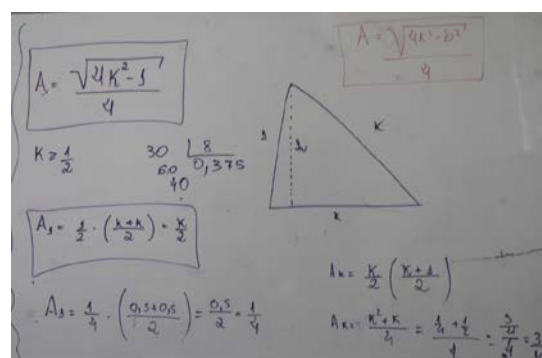 A = √(4K² - 1) / 4
A = √(4K² - b²) / 4
K ≥ 1/2
30 | 8
60 0,375
40
1
K
K
A₁ = 1/2 · ((k+k)/2) = K/2
A₁ = 1/4 · ((0,5+0,5)/2) = 0,5/2 = 1/4
Aₖ = K/2 ((K+1)/2)
Aₖ = (K² + K)/4 = (1/4 + 1/2)/4 = (3/4)/4 = 3/